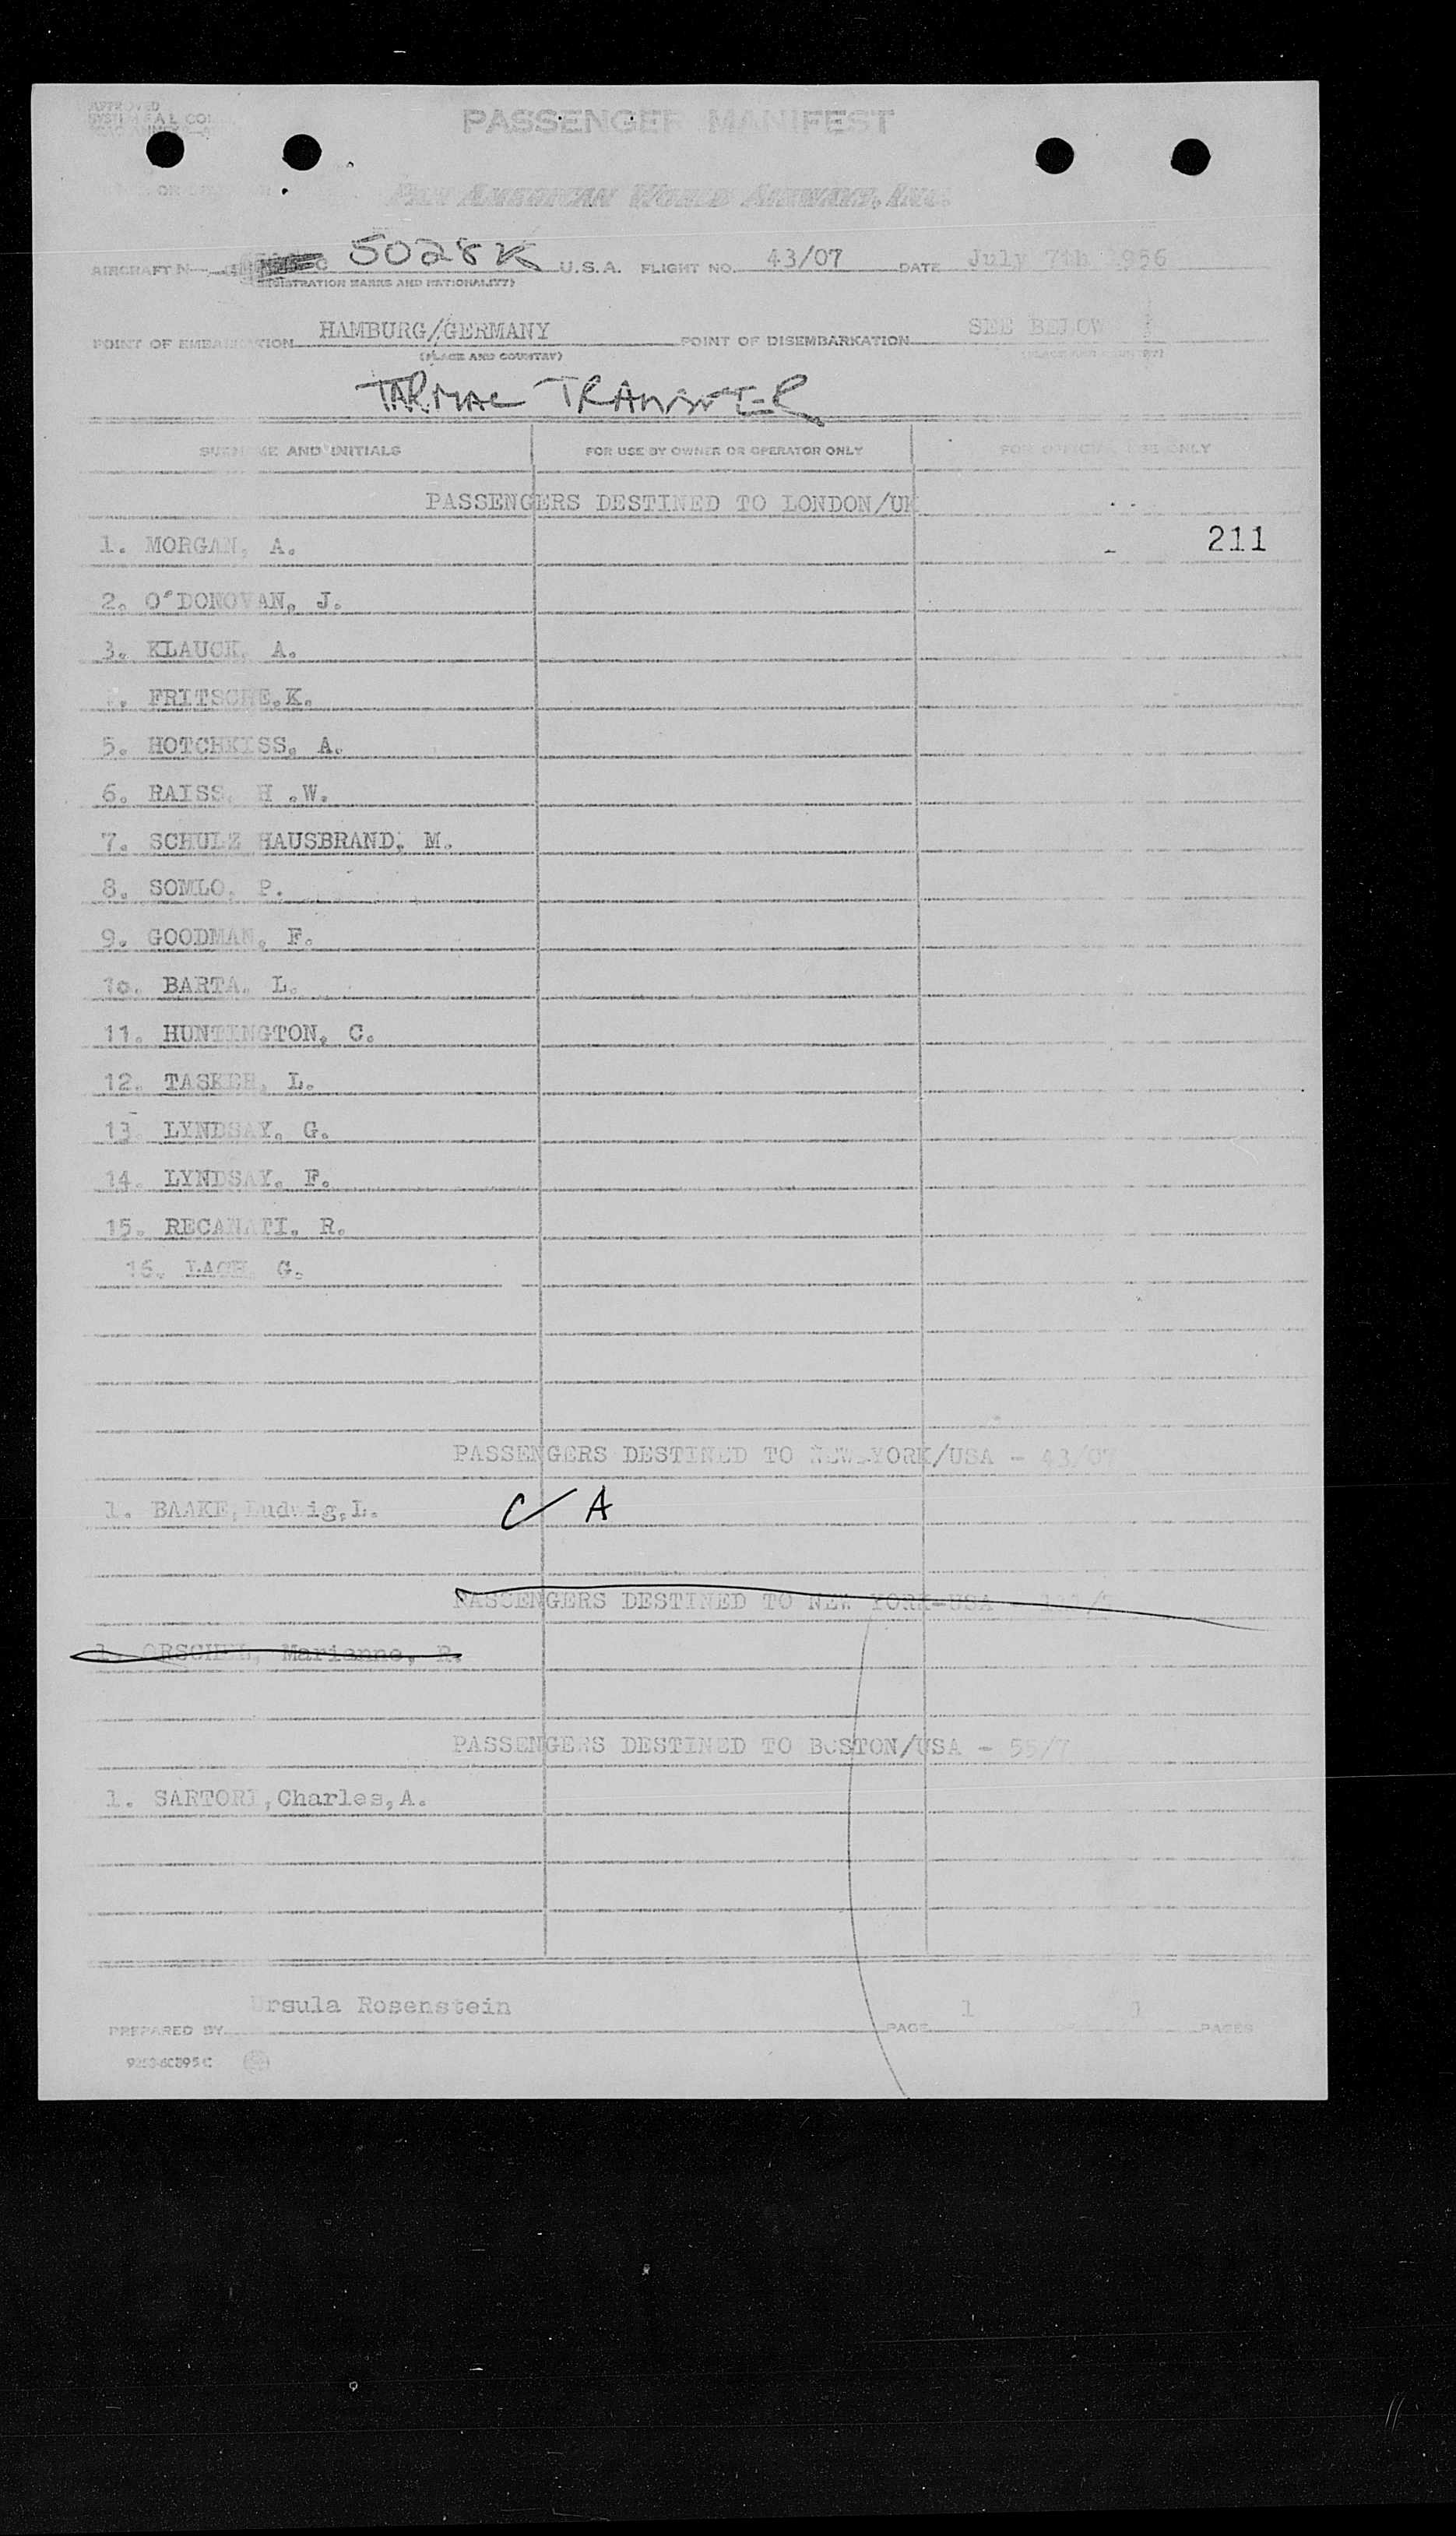 APPROVED
PASSENGER MANIFEST
PAN AMERICAN WORLD AIRWAYS, INC.
AIRCRAFT N 5028K U.S.A. FLIGHT NO. 43/07 DATE July 7th 1956
(REGISTRATION MARKS AND NATIONALITY)
POINT OF EMBARKATION HAMBURG/GERMANY POINT OF DISEMBARKATION SEE BELOW
(PLACE AND COUNTRY) (PLACE AND COUNTRY)
TARMAC TRANSFER
SURNAME AND INITIALS FOR USE BY OWNER OR OPERATOR ONLY FOR OFFICIAL USE ONLY
PASSENGERS DESTINED TO LONDON/UK
1. MORGAN, A. 211
2. O'DONOVAN, J.
3. KLAUCK, A.
. FRITSCHE.K.
5. HOTCHKISS, A.
6. RAISS, H .W.
7. SCHULZ HAUSBRAND, M.
8. SOMLO, P.
9. GOODMAN, F.
1o. BARTA, L.
11. HUNTINGTON, C.
12. L.
13. LYNDSAY, G.
14. LYNDSAY, F.
15. RECANATI, R.
16. G.
PASSENGERS DESTINED TO NEW YORK/USA - 43/07
1. BAAKE, Ludwig, L. C/A
PASSENGERS DESTINED TO NEW YORK-USA
1. Marianne, R.
PASSENGERS DESTINED TO BOSTON/USA - 55/7
1. SARTORI, Charles, A.
Ursula Rosenstein 1 1
PREPARED BY PAGE OF PAGES